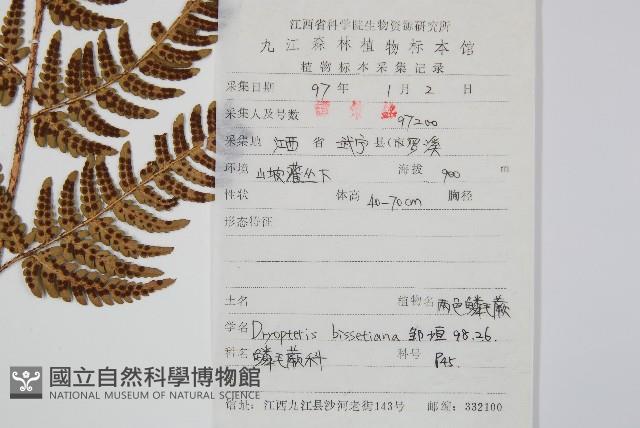 江西省科学院生物资源研究所
九江森林植物标本馆
植物标本采集记录
采集日期 97 年 1 月 2 日
采集人及号数 97200
采集地 江西 省 武宁 县(市) 罗溪
环境 山坡灌丛下 海拔 900 m
性状 体高 40-70cm 胸径
形态特征
土名 植物名 两色鳞毛蕨
学名 Dryopteris bissetiana 邹垣 98.26.
科名 鳞毛蕨科 科号 P45.
國立自然科學博物館
NATIONAL MUSEUM OF NATURAL SCIENCE
馆址：江西九江县沙河老街143号 邮编：332100